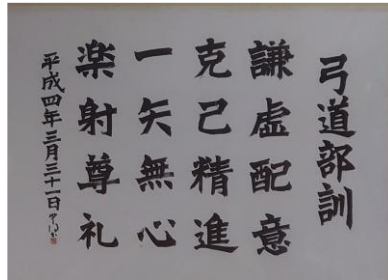 弓道部訓
謙虚配意
克己精進
一矢無心
楽射尊礼
平成四年三月三十一日